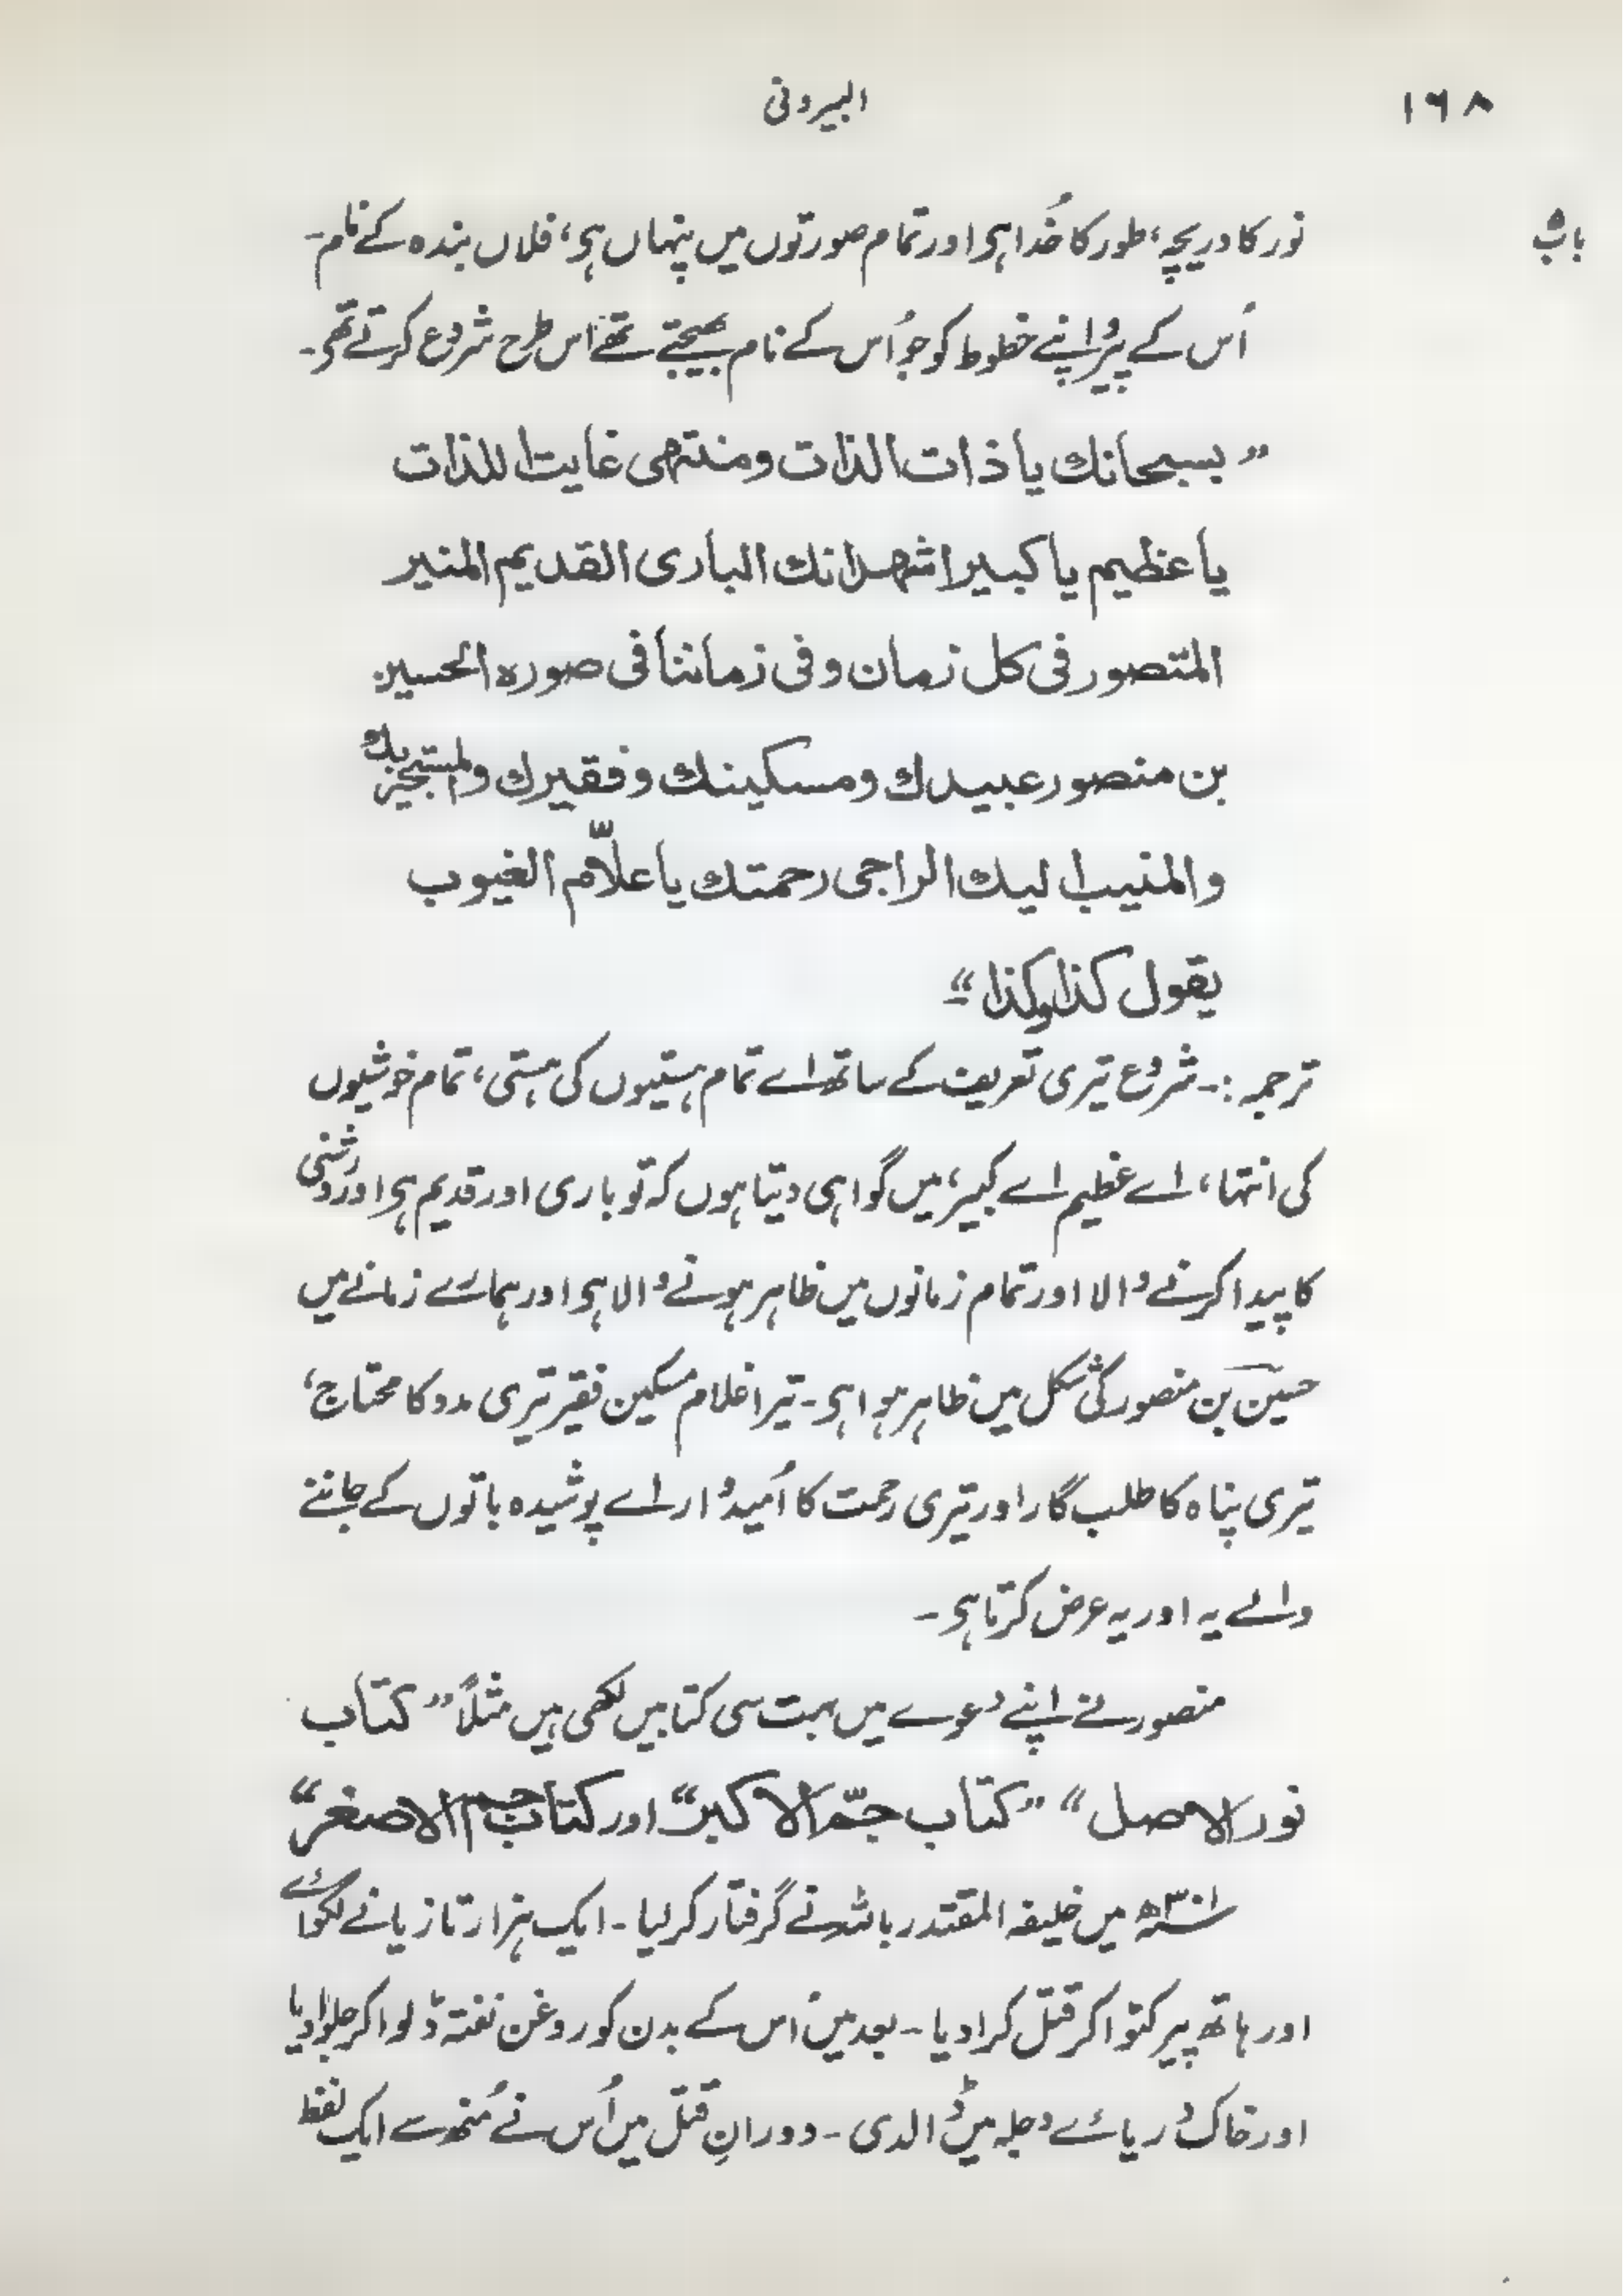 ۱۶۸
البیرونی
باب ۵
نور کا دریچہ، طور کا خُدا ہی اور تمام صورتوں میں پنہاں ہی، فلاں بندہ کے نام۔
اُس کے پیرو اپنے خطوط کو جو اُس کے نام بھیجتے تھے اس طرح شروع کرتے تھی۔
”بسبحانك یا ذات الذات ومنتہی غایت اللذات
یا عظیم یا کبیر اشہد انك الباری القدیم المنیر
المتصور فی کل زمان و فی زماننا فی صورہ الحسین
بن منصور عبیدك ومسکینك وفقیرك والمستجیر بك
والمنیب الیك الراجی رحمتك یا علّام الغیوب
یقول کذا وکذا“۔
ترجمہ :۔ شروع تیری تعریف کے ساتھ اے تمام ہستیوں کی ہستی، تمام خوشیوں
کی انتہا، اے عظیم اے کبیر، میں گواہی دیتا ہوں کہ تو باری اور قدیم ہی اور روشنی
کا پیدا کرنے والا اور تمام زمانوں میں ظاہر ہونے والا ہی اور ہمارے زمانے میں
حسین بن منصور کی شکل میں ظاہر ہوا ہی۔ تیرا غلام مسکین فقیر تیری مدد کا محتاج،
تیری پناہ کا طلب گار اور تیری رحمت کا اُمیدوار اے پوشیدہ باتوں کے جاننے
والے یہ اور یہ عرض کرتا ہی۔
منصور نے اپنے دعوے میں بہت سی کتابیں لکھی ہیں مثلاً ”کتاب
نور الاصل“ ”کتاب جمّ الاکبر“ اور کتاب جم الاصغر“
۳۰۱ھ میں خلیفہ المقتدر باللہ نے گرفتار کر لیا۔ ایک ہزار تازیانے لگوائے
اور ہاتھ پیر کٹوا کر قتل کرا دیا۔ بعد میں اُس کے بدن کو روغن نفتہ ڈلوا کر جلوا دیا
اور خاک دریائے دجلہ میں ڈال دی۔ دورانِ قتل میں اُس نے مُنھ سے ایک لفظ